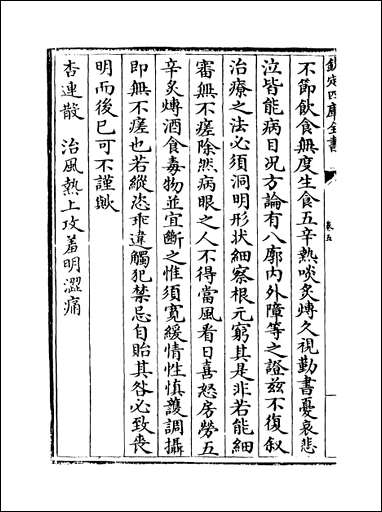 欽定四庫全書
卷五
不節飲食無度生食五辛熱啖炙煿久視勤書憂哀悲
泣皆能病目況方論有八廓内外障等之證兹不復叙
治療之法必須洞明形状細察根元窮其是非若能細
審無不瘥除然病眼之人不得當風看日喜怒房勞五
辛炙煿酒食毒物並宜斷之惟須寛緩情性慎護調攝
即無不瘥也若縱恣乖違觸犯禁忌自貽其咎必致喪
明而後已可不謹歟
杏連散　治風熱上攻羞明澀痛